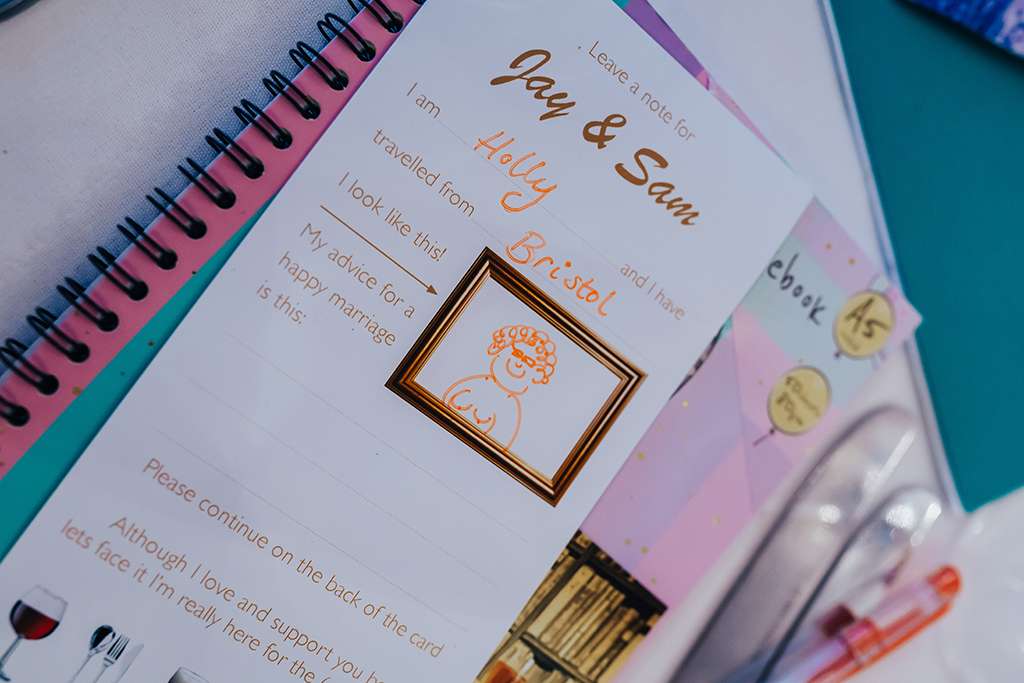 Leave a note for
Jay & Sam
I am Holly and I have
travelled from Bristol
I look like this!
My advice for a
happy marriage
is this:
Please continue on the back of the card
Although I love and support you
lets face it I'm really here for the
ebook
A5
80gsm